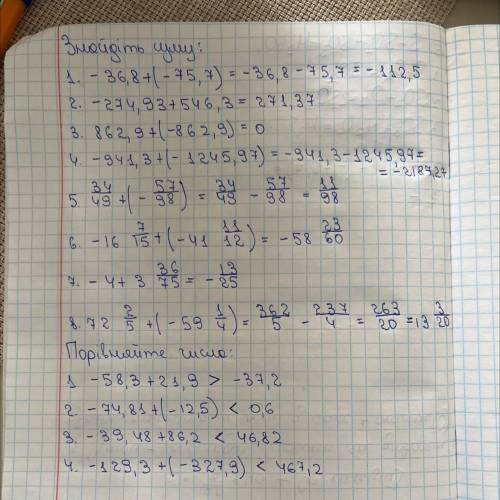 Знайдіть суму:
1. -36,8+(-75,7)=-36,8-75,7=-112,5
2. -274,93+546,3=271,37
3. 862,9+(-862,9)=0
4. -941,3+(-1245,97)=-941,3-1245,97=
=-2187,27
5. 34/49+(-57/98)=34/49-57/98=11/98
6. -16 7/15+(-41 11/12)=-58 23/60
7. -4+3 36/75=-13/25
8. 72 2/5+(-59 1/4)=362/5-237/4=263/20=13 3/20
Порівняйте числа:
1 -58,3+21,9 > -37,2
2 -74,81+(-12,5) < 0,6
3. -39,48+86,2 < 46,82
4. -129,3+(-327,9) < 467,2